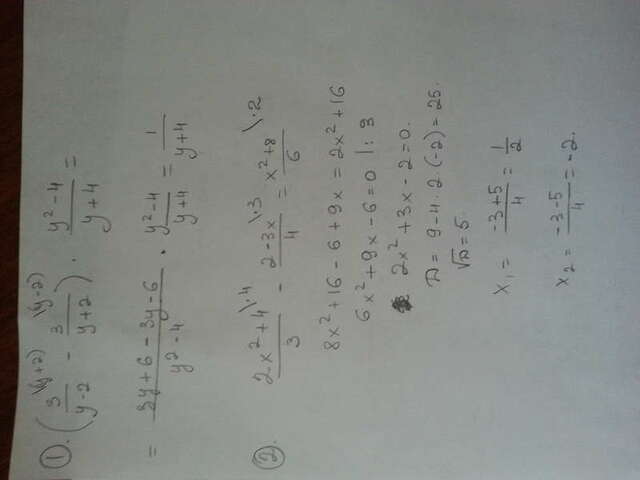 ① (3\(y+2)/(y-2) - 3\(y-2)/(y+2)) · (y²-4)/(y+4) =
= (3y+6-3y-6)/(y²-4) · (y²-4)/(y+4) = 1/(y+4)
②. (2x²+4)/3 \·4 - (2-3x)/4 \·3 = (x²+8)/6 \·2
8x²+16-6+9x = 2x²+16
6x²+9x-6=0 |:3
2x²+3x-2=0.
D = 9-4·2·(-2)=25.
√D=5.
x₁ = (-3+5)/4 = 1/2
x₂ = (-3-5)/4 = -2.